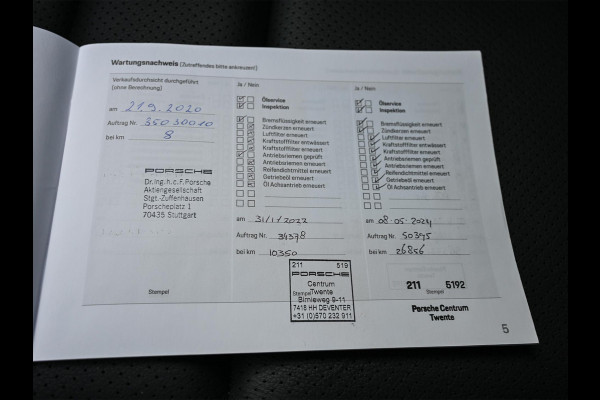 Wartungsnachweis (Zutreffendes bitte ankreuzen!)
Verkaufsdurchsicht durchgeführt
(ohne Berechnung)
am 21.9.2020
Auftrag Nr. 35030010
bei km 8
PORSCHE
Dr. Ing. h.c. F. Porsche
Aktiengesellschaft
Stgt.-Zuffenhausen
Porscheplatz 1
70435 Stuttgart
Stempel
Ja / Nein
Ölservice
Inspektion
Bremsflüssigkeit erneuert
Zündkerzen erneuert
Luftfilter erneuert
Kraftstofffilter entwässert
Kraftstofffilter erneuert
Antriebsriemen geprüft
Antriebsriemen erneuert
Reifendichtmittel erneuert
Getriebeöl erneuert
Öl Achsantrieb erneuert
am 31/1/2022
Auftrag Nr. 34378
bei km 10350
211 519
PORSCHE
Centrum
Stempel Twente
Birnieweg 9-11
7418 HH DEVENTER
+31 (0)570 232 911
Ja / Nein
Ölservice
Inspektion
Bremsflüssigkeit erneuert
Zündkerzen erneuert
Luftfilter erneuert
Kraftstofffilter entwässert
Kraftstofffilter erneuert
Antriebsriemen geprüft
Antriebsriemen erneuert
Reifendichtmittel erneuert
Getriebeöl erneuert
Öl Achsantrieb erneuert
am 08-05-2024
Auftrag Nr. 50395
bei km 26856
211 5192
Stempel
Porsche Centrum
Twente
5